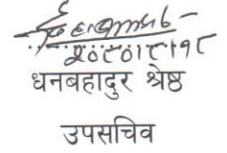 २०८०।८।१८
धनबहादुर श्रेष्ठ
उपसचिव